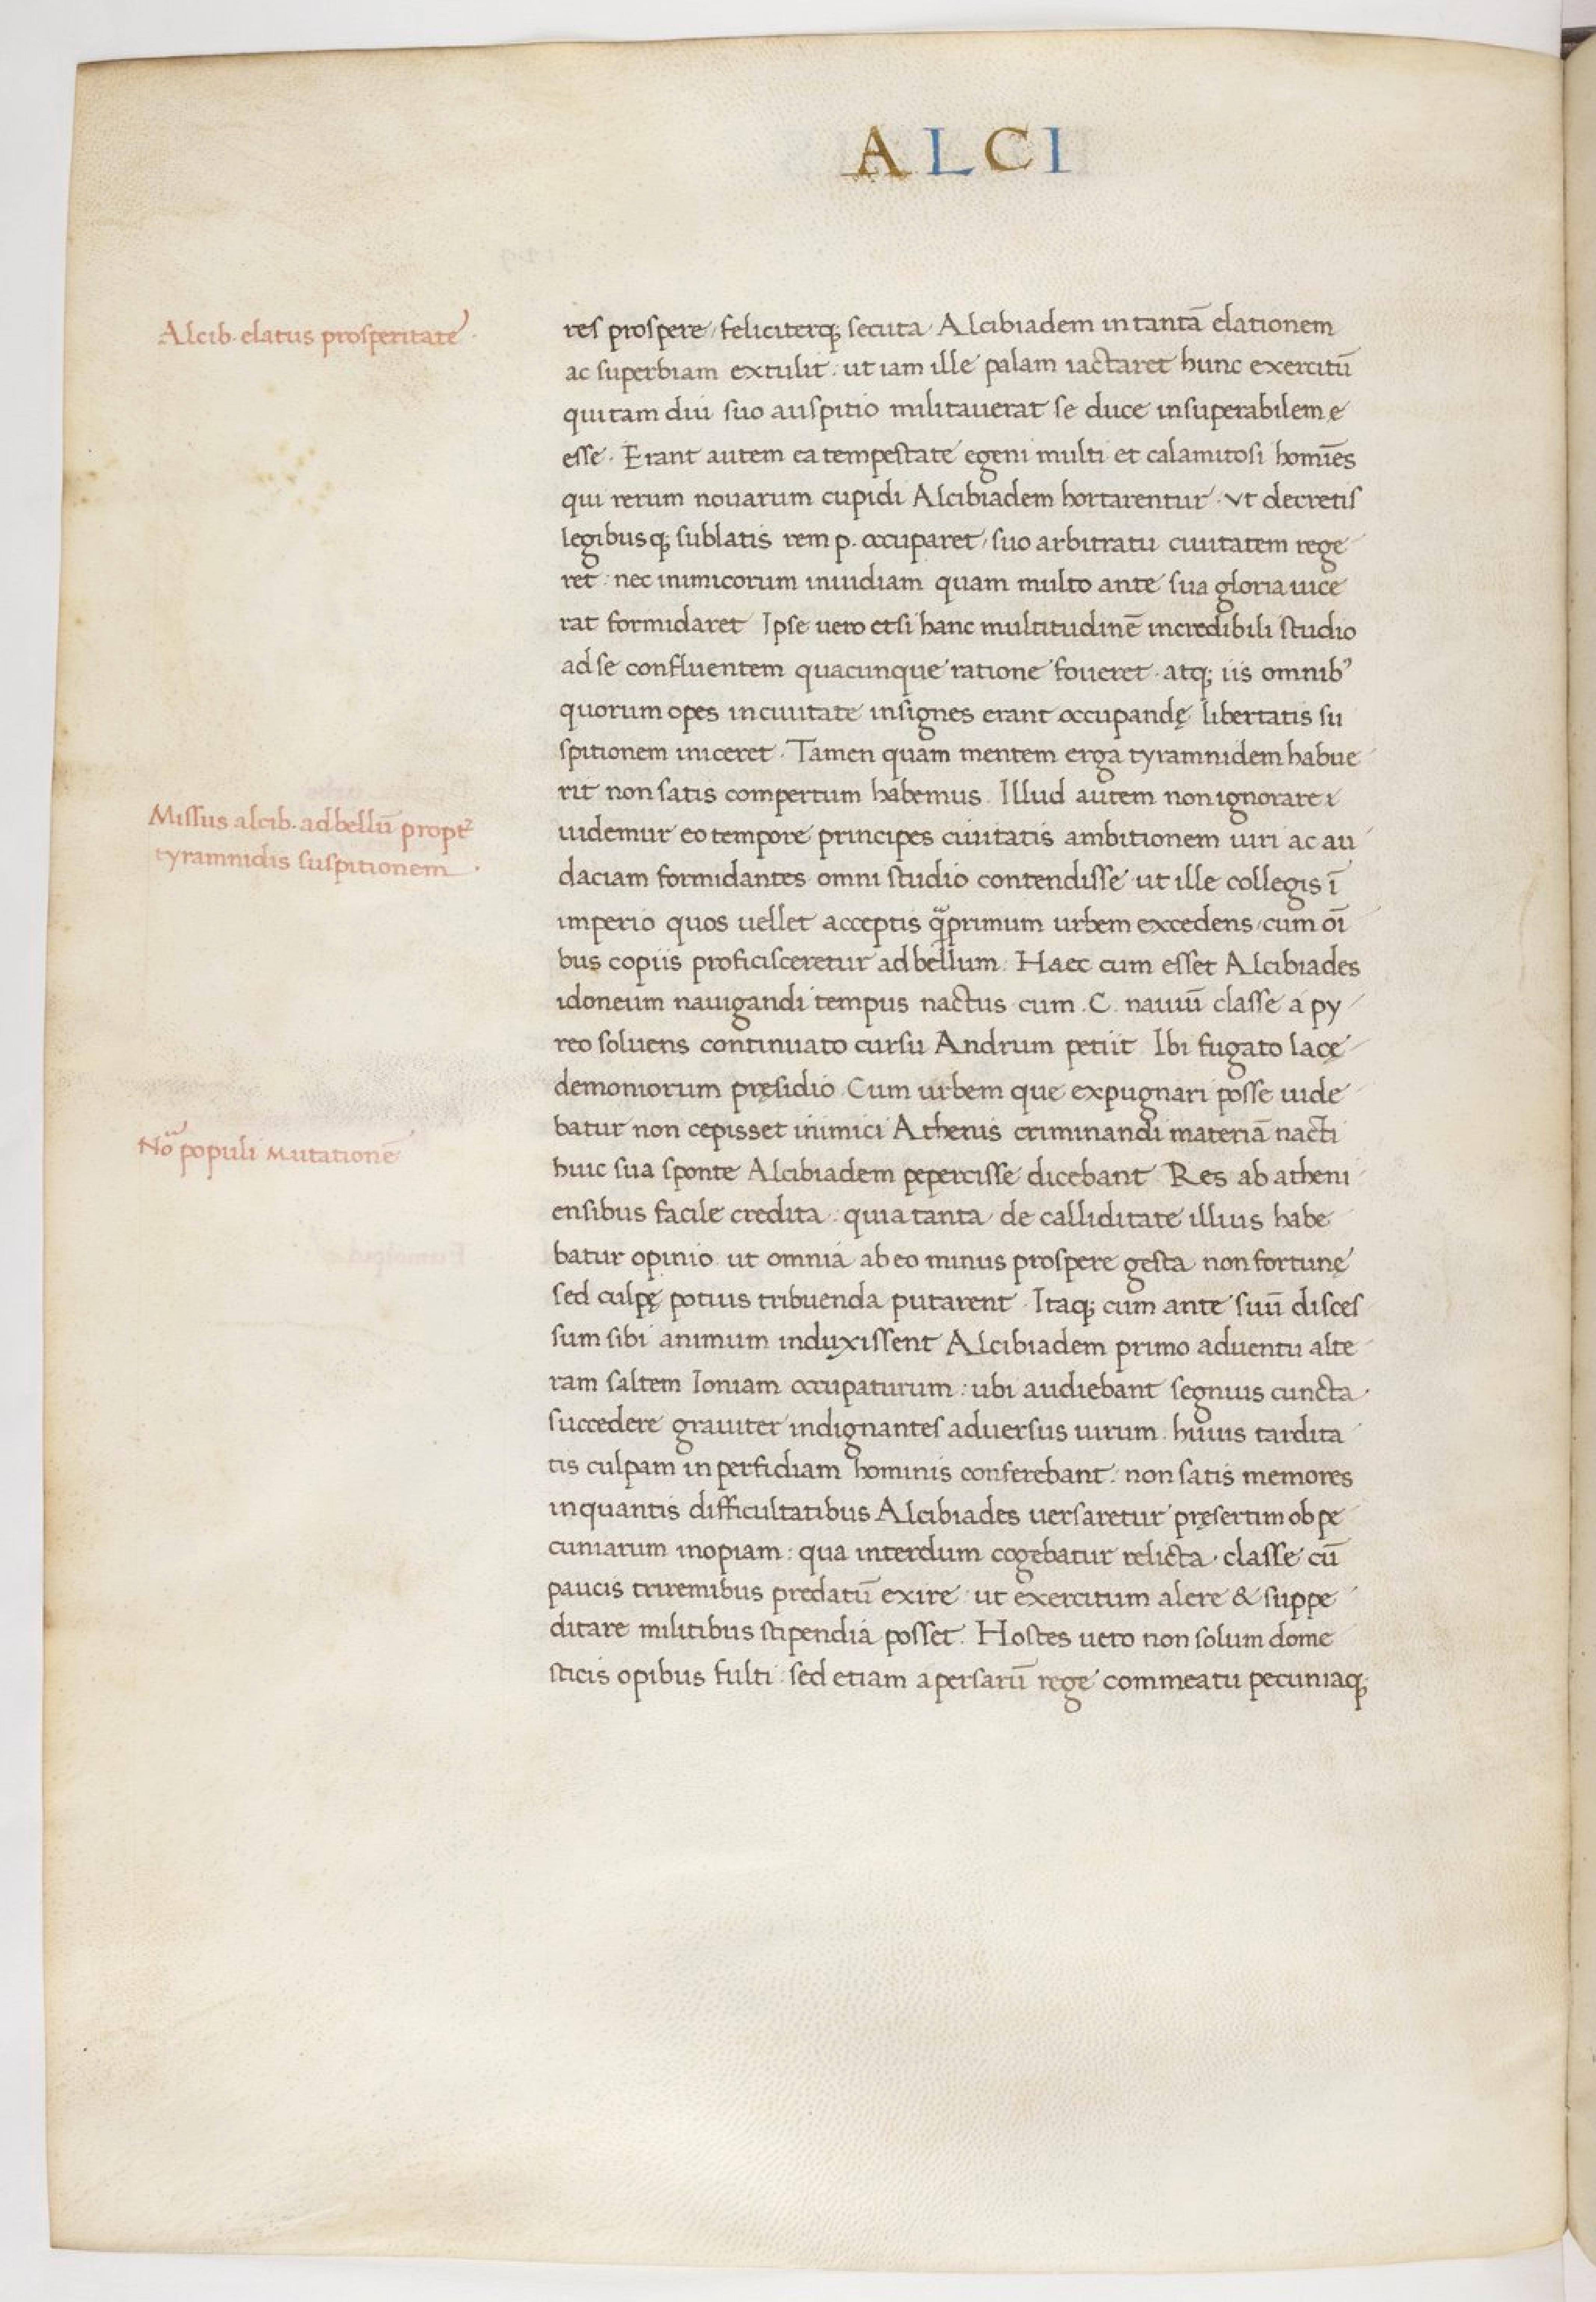 ALCI
Alcib. elatus prosperitate.
res prospere, feliciterq; secuta Alcibiadem in tantā elationem
ac superbiam extulit: ut iam ille palam iactaret hunc exercitū
qui tam diu suo auspitio militauerat se duce insuperabilem e
esse. Erant autem ea tempestate egeni multi et calamitosi homīes
qui rerum nouarum cupidi Alcibiadem hortarentur. Vt decretis
legibusq; sublatis rem p. occuparet, suo arbitratu ciuitatem rege
ret: nec inimicorum inuidiam quam multo ante sua gloria uice
rat formidaret Ipse uero etsi hanc multitudinē incredibili studio
ad se confluentem quacunque ratione foueret. atq; iis omnibꝰ
quorum opes in ciuitate insignes erant occupandę libertatis su
spitionem iniceret. Tamen quam mentem erga tyramnidem habue
rit non satis compertum habemus. Illud autem non ignorare i
Missus alcib. ad bellū propt᷑
tyramnidis suspitionem.
uidemur eo tempore principes ciuitatis ambitionem uiri ac au
daciam formidantes omni studio contendisse ut ille collegis ī
imperio quos uellet acceptis qͣprimum urbem excedens, cum oī
bus copiis proficisceretur ad bellum. Haec cum esset Alcibiades
idoneum nauigandi tempus nactus cum .C. nauiū classe a py
reo soluens continuato cursu Andrum petiit Ibi fugato lacę
demoniorum pręsidio Cum urbem que expugnari posse uide
batur non cepisset inimici Athenis criminandi materiā nacti
Noͣ populi Mutationē
huic sua sponte Alcibiadem pepercisse dicebant Res ab atheni
ensibus facile credita: quia tanta de calliditate illius habe
batur opinio ut omnia ab eo minus prospere gesta non fortunę
sed culpę potius tribuenda putarent. Itaq; cum ante suū disces
sum sibi animum induxissent Alcibiadem primo aduentu alte
ram saltem Ioniam occupaturum: ubi audiebant segnius cuncta
succedere grauiter indignantes aduersus uirum. huius tardita
tis culpam in perfidiam hominis conferebant: non satis memores
in quantis difficultatibus Alcibiades uersaretur pręsertim ob pe
cuniarum inopiam: qua interdum cogebatur relicta. classe cū
paucis triremibus predatū exire ut exercitum alere & suppe
ditare militibus stipendia posset. Hostes uero non solum dome
sticis opibus fulti: sed etiam a persarū rege commeatu pecuniaq;